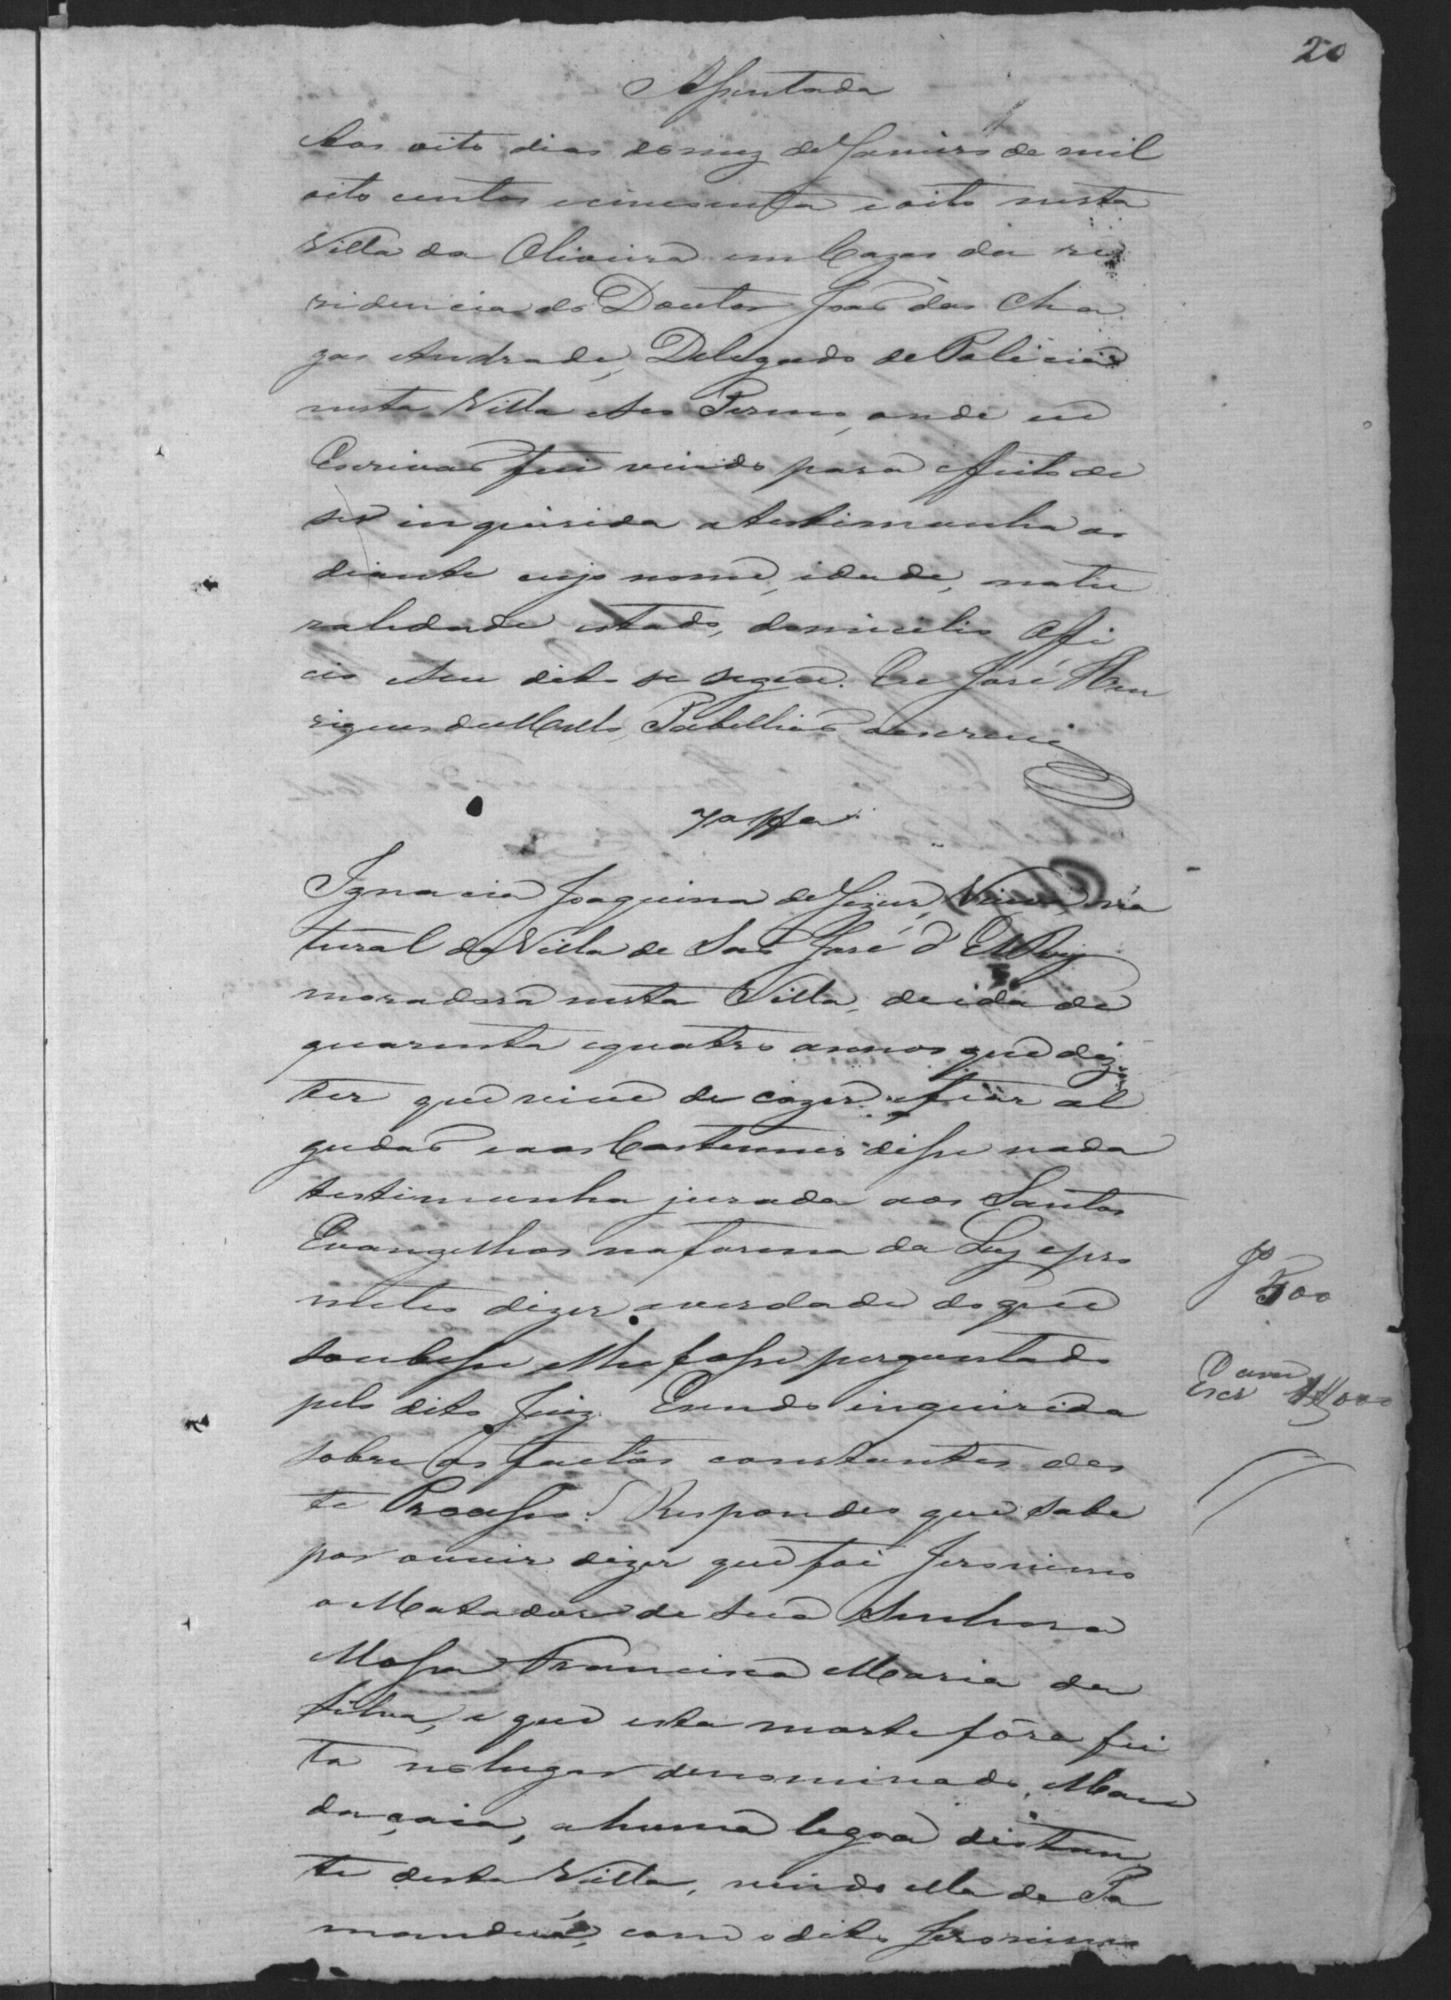 20
Assentada
Aos oito dias do mez de Janeiro de mil
oito centos e cincoenta e oito nesta
Villa da Oliveira em Cazas da re
zidencia do Doutor João das Cha
gas Andrade, Delegado de Policia
nesta Villa e seo Termo, onde eu
Escrivão fui vindo para effeito de
ser inquirida a testimunha a
diante cujo nome, idade, natu
ralidade estado, domicilio Offi
cio e seu dito se segue. Eu José Hen
riques de Mello, Tabellião o escrevi
7a tta
Ignacia Joaquina de Jezus, Viuva, na
tural da Villa de São José d'El Rey
moradora nesta Villa, de idade
quarenta e quatro annos que diz
ter que vive de cozer e fiar al
gudão e aos Costumes disse nada
testimunha jurada aos Santos
Evangelhos na forma da Ley e pro
meteo dizer a verdade do que
soubesse e lhe fosse perguntado
pelo dito Juiz. E sendo inquirida
sobre os factos constantes des
te Processo? Respondeo que sabe
por ouvir dizer que foi Jeronimo
o Matador de sua Senhora
Mossa Francisca Maria da
Silva, e que esta morte fôra fei
ta no lugar denominado, Man
daçaia, a huma legoa distan
te desta Villa, vindo ella de Ta
manduá, com o dito Jeronimo
Jo
500
Escr 1$000